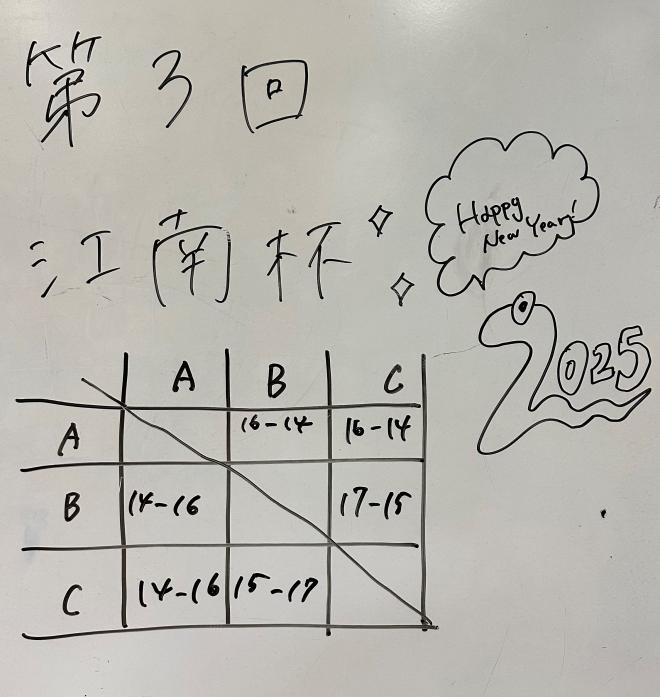 第3回
江南杯
Happy
New Year!
2025
A B C
A 16-14 16-14
B 14-16 17-15
C 14-16 15-17